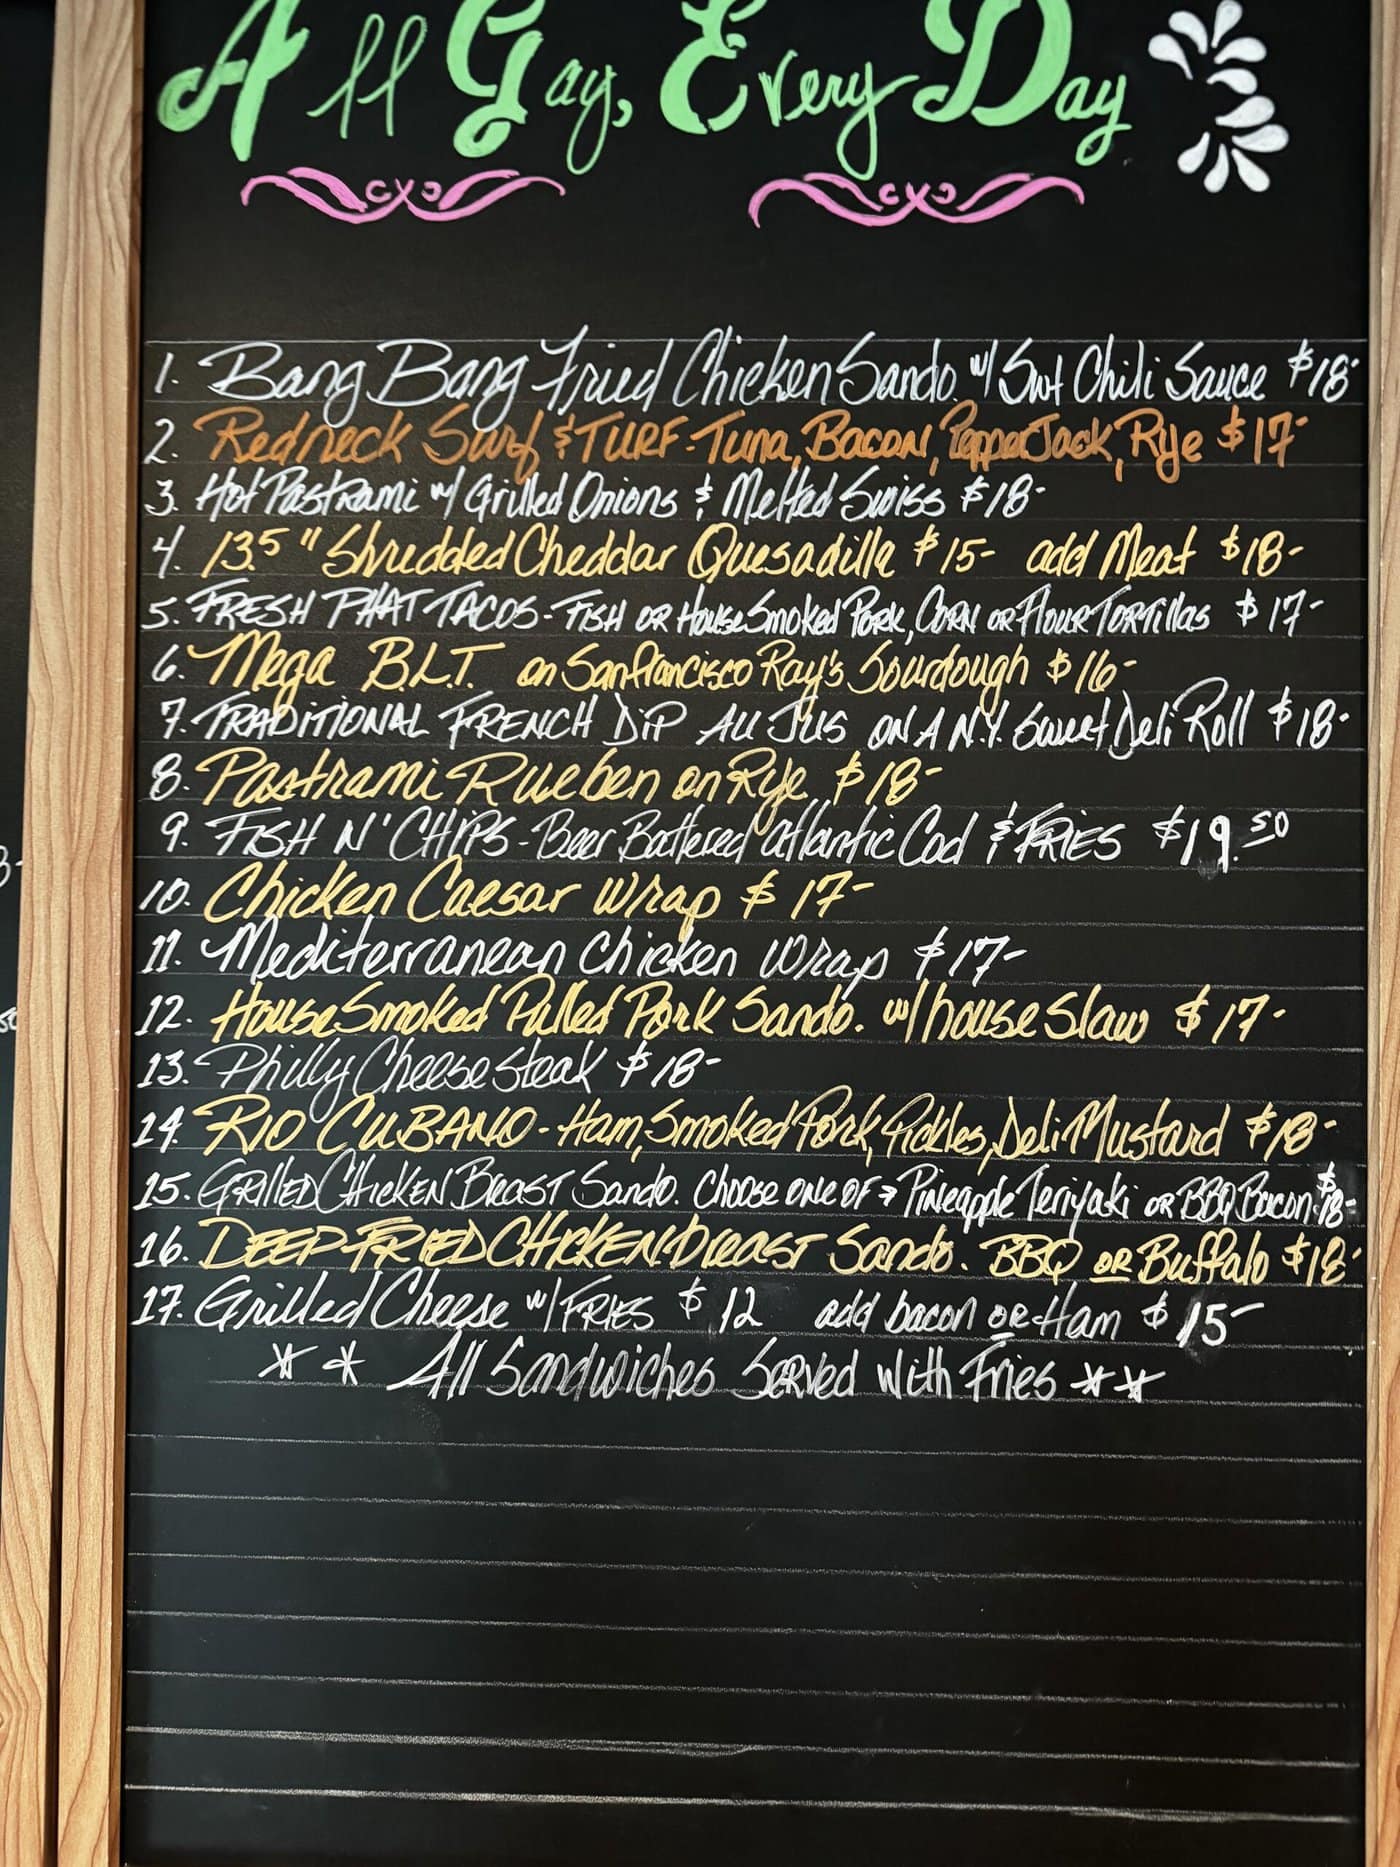 All Gay, Every Day
1. Bang Bang Fried Chicken Sando. w/ Swt Chili Sauce $18-
2. Redneck Surf & TURF - Tuna, Bacon, PepperJack, Rye $17-
3. Hot Pastrami w/ Grilled Onions & Melted Swiss $18-
4. 13.5" Shredded Cheddar Quesadilla $15- add Meat $18-
5. FRESH PHAT TACOS - FISH OR House Smoked Pork, CORN OR Flour TORTillas $17-
6. Mega B.L.T. on San Francisco Ray's Sourdough $16-
7. TRADITIONAL FRENCH DiP AU JUS ON A N.Y. Sweet Deli Roll $18-
8. Pastrami Rueben on Rye $18-
9. FISH N' CHIPS - Beer Battered Atlantic Cod & FRIES $19.50
10. Chicken Caesar Wrap $17-
11. Mediterranean Chicken Wrap $17-
12. House Smoked Pulled Pork Sando. w/ house Slaw $17-
13. Philly Cheese steak $18-
14. RIO CUBANO - Ham, Smoked Pork, Pickles, Deli Mustard $18-
15. GRilled CHicKEN BREAST Sando. Choose ONE OF → Pineapple Teriyaki OR BBQ Bacon $18-
16. DEEP-FRIED CHICKEN breast Sando. BBQ OR Buffalo $18-
17. Grilled Cheese w/ FRIES $12 add bacon OR Ham $15-
** All Sandwiches Served With Fries **